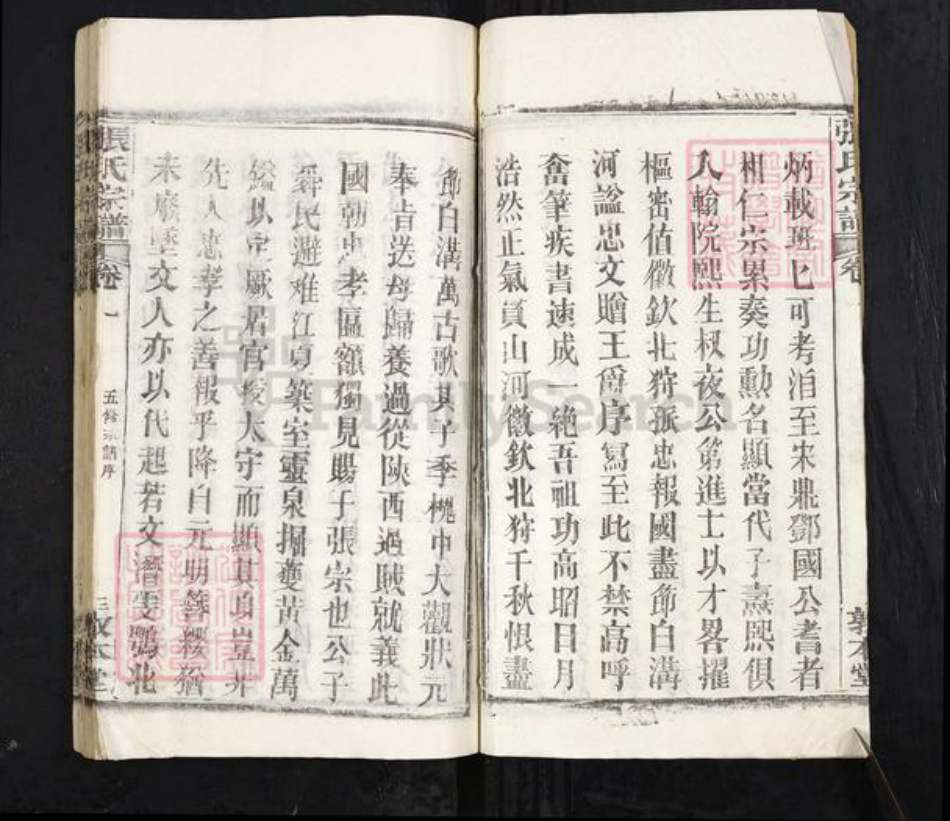 張氏宗譜
卷
敦本堂
炳載班匕可考洎至宋鼎鄧國公耆者
相仁宗累奏功勳名顯當代子燾熙俱
入翰院熙生叔夜公第進士以才畧擢
樞密值徽欽北狩孤忠報國盡節白溝
河謚忠文贈王爵序寫至此不禁高呼
奮筆疾書速成一絶吾祖功高昭日月
浩然正氣貫山河徽欽北狩千秋恨盡
節白溝萬古歌其子季槐中大觀狀元
奉旨送母歸養過從陝西遇賊就義此
國朝忠孝匾額獨見賜于張宗也公子
舜民避难江夏築室靈泉掘蔓黃金萬
鎰以定厥居官授太守而顯其
先人忠孝之善報乎降自元明簪纓猶
未 墜文人亦以代起若文 北
張氏宗譜
卷一
五修 譜序
三
敦本堂
FamilySearch